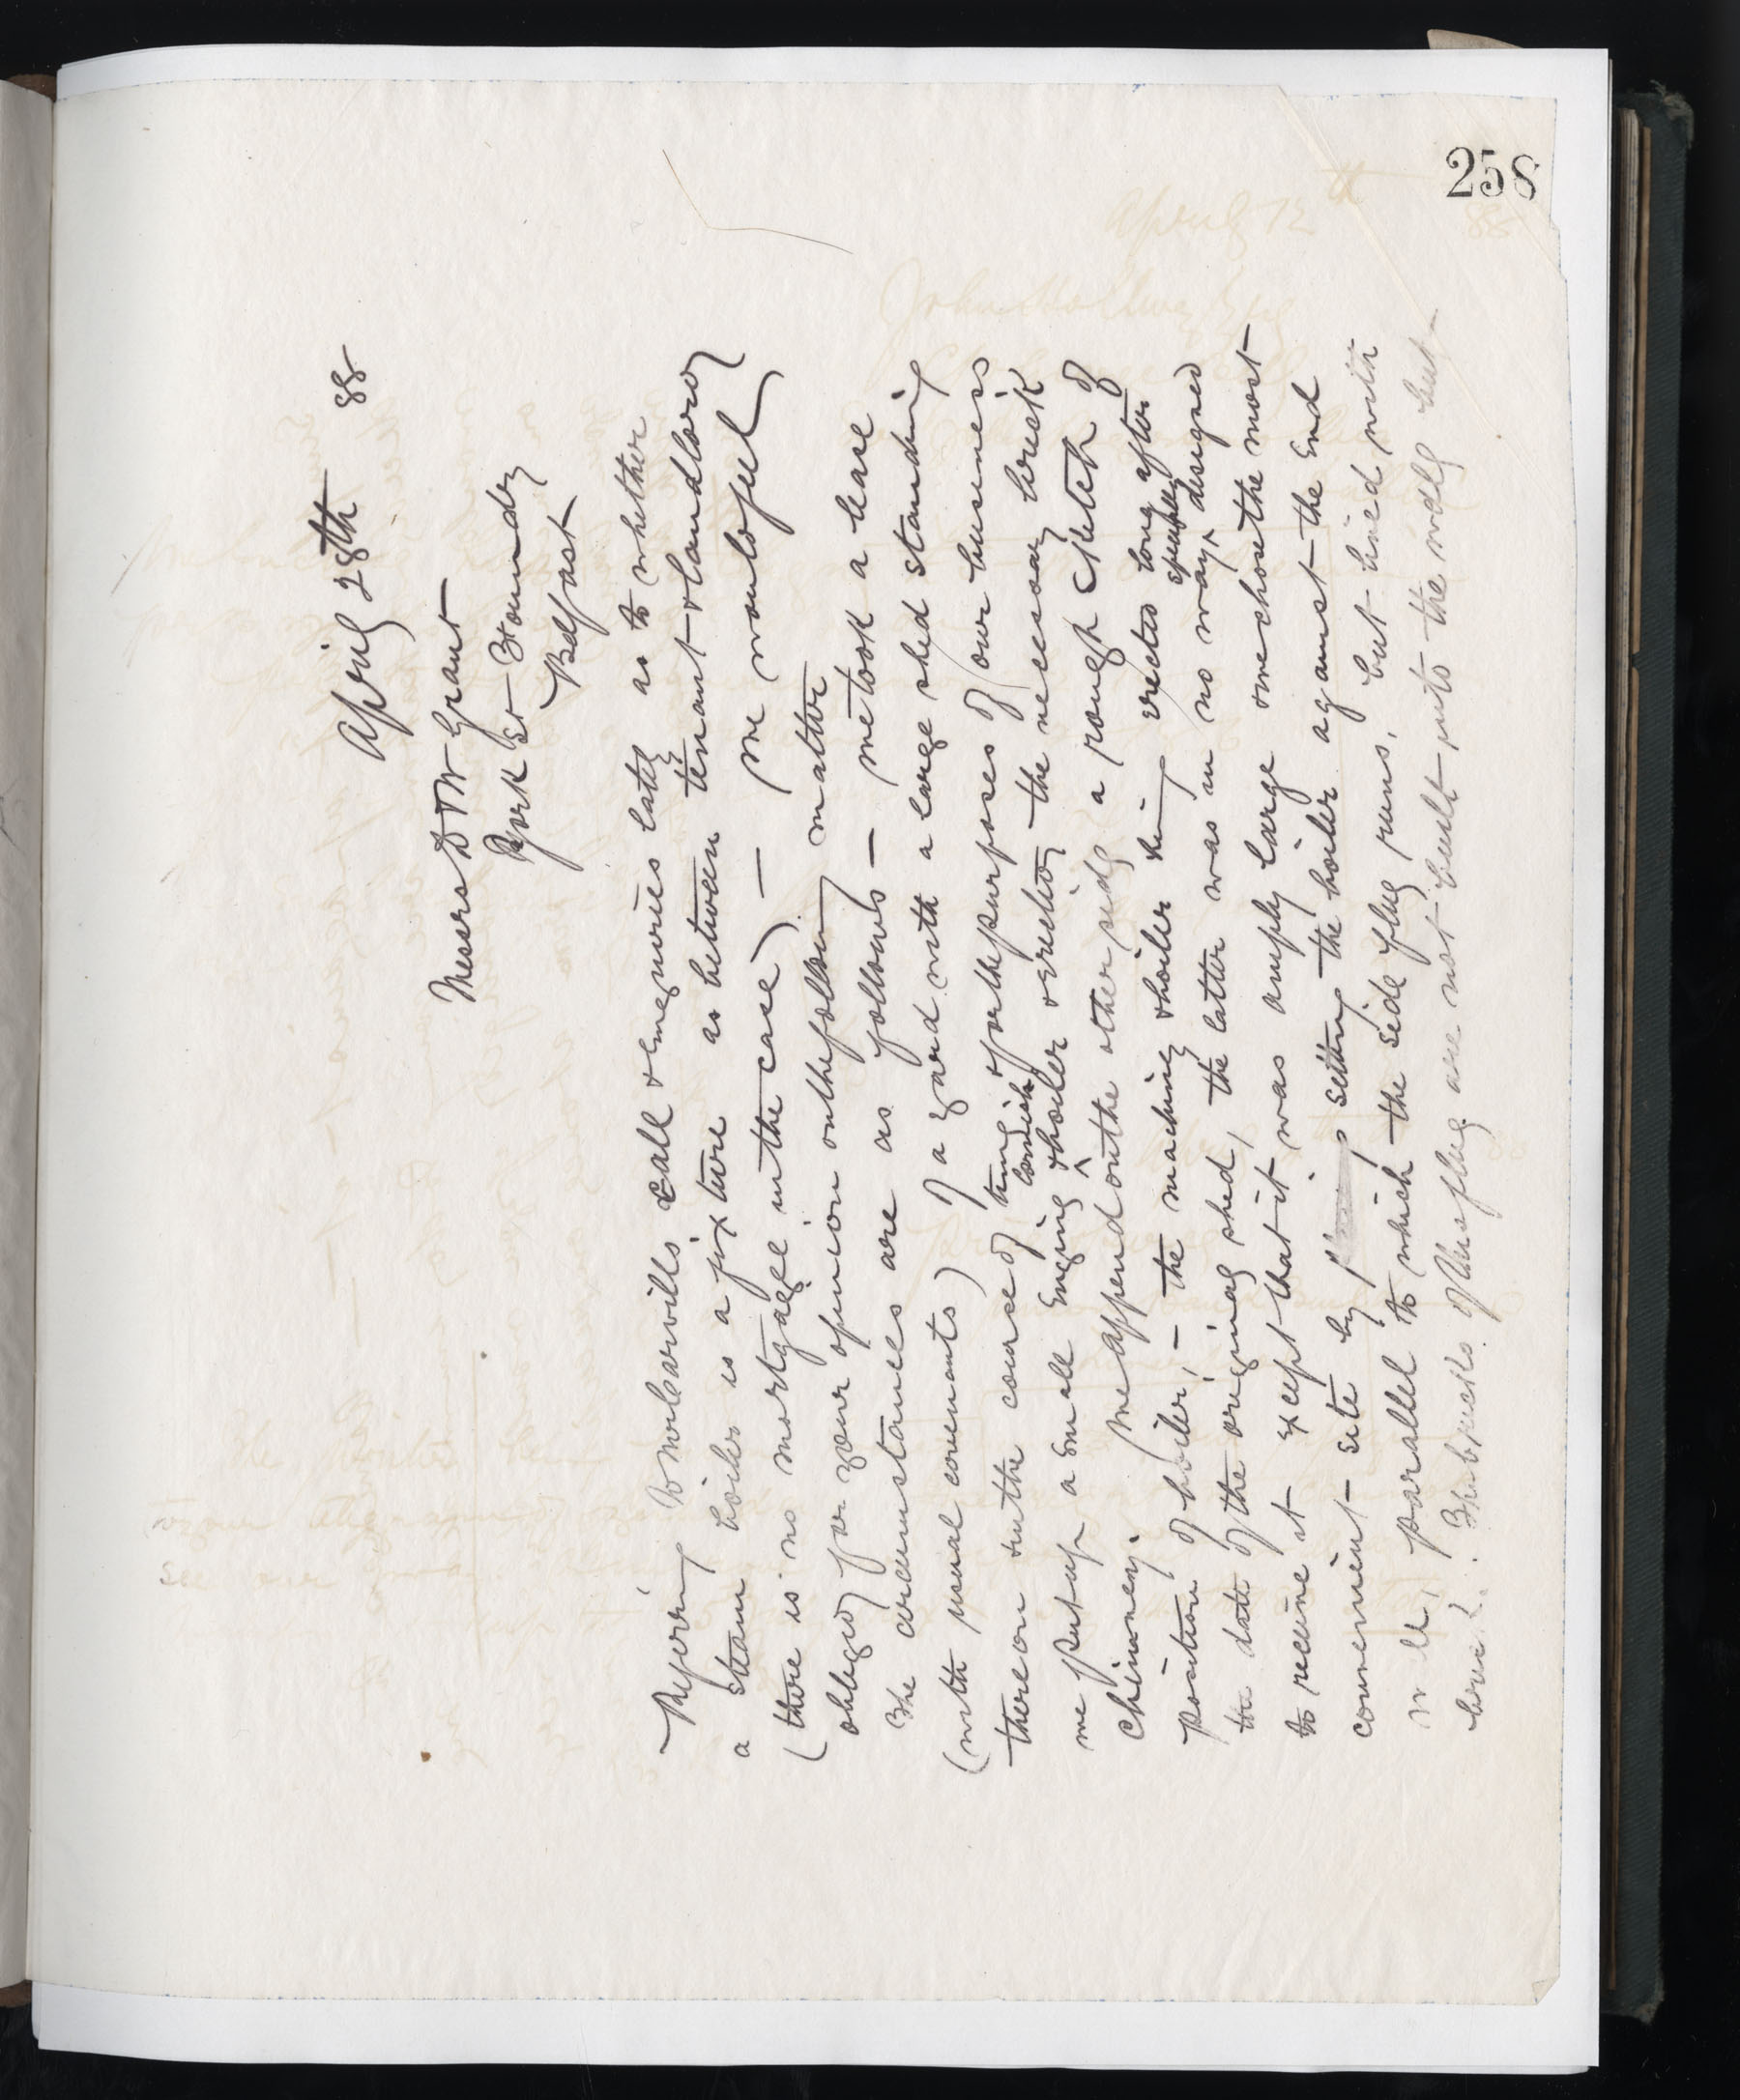 258
April 28th 88
Messrs D & W Grant
York St Foundry
Belfast
Refering to our Carvills call & enquiries lately as to whether
a steam boiler is a fixture as between tenant & landlord
(there is no mortgage in the case) — we would feel
obliged for your opinion on the following matter
The circumstances are as follows — we took a lease
(with usual covenants) of a yard with a large shed standing
thereon & in the course of time & for the purposes of our business
we put up a small Engine & Cornish boiler & erected the necessary brick
chimney. We append on the other side a rough sketch of
position of boiler, — the machinery & boiler being erected long after
the date of the original shed, the latter was in no way specially designed
to receive it except that it was amply large & we chose the most
convenient site by setting the boiler against the end
wall, parallel to which the side flue runs, but lined with
brick. The bricks of this flue are not built into the wall but